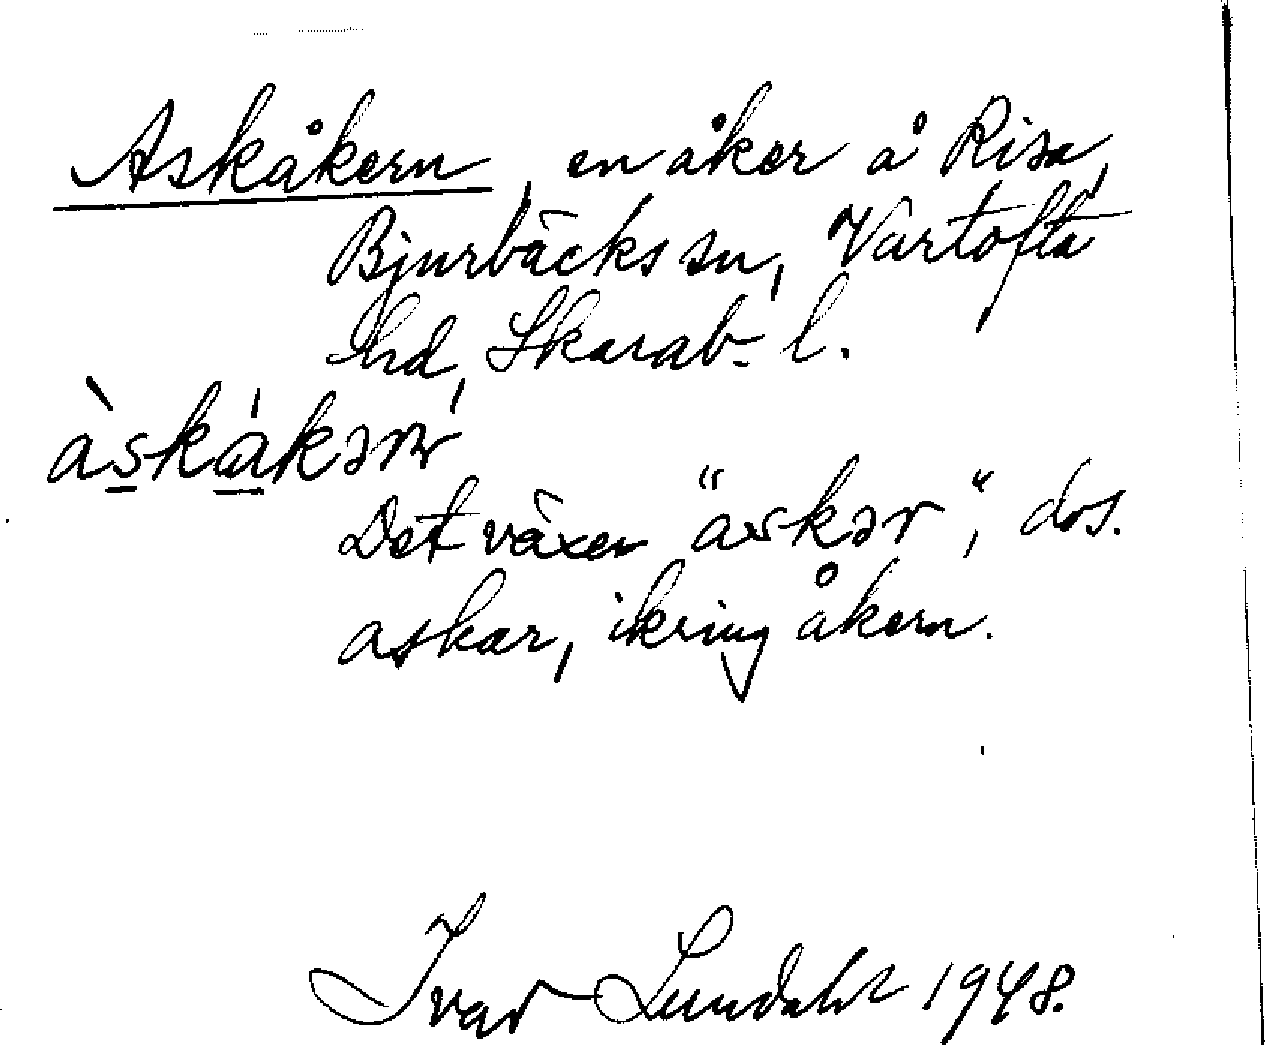 Askåkern, en åker å Risa,
Bjurbäcks sn, Vartofta
hd, Skarab. l.
àskákəṇ
Det växer "askər", dvs.
askar, ikring åkern.
Ivar Lundahl 1948.